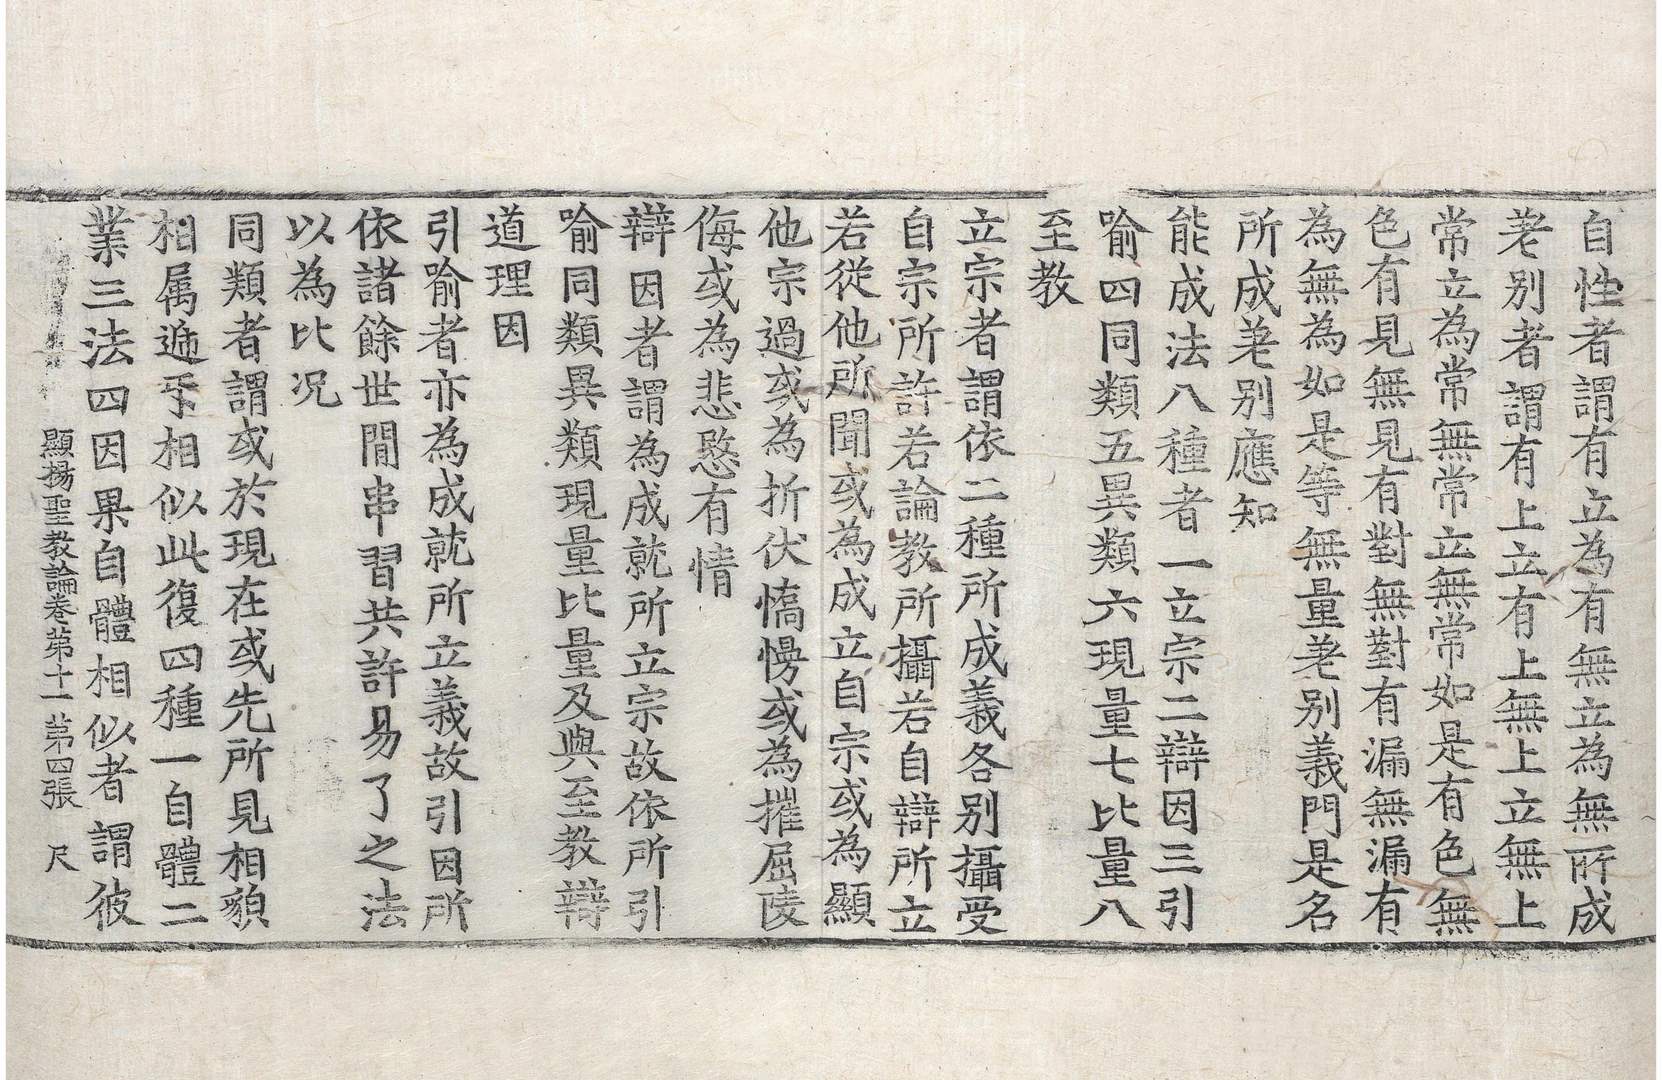 自性者謂有立為有無立為無所成
差別者謂有上立有上無上立無上
常立為常無常立無常如是有色無
色有見無見有對無對有漏無漏有
為無為如是等無量差別義門是名
所成差別應知
能成法八種者一立宗二辯因三引
喻四同類五異類六現量七比量八
至教
立宗者謂依二種所成義各別攝受
自宗所許若論教所攝若自辯所立
若從他所聞或為成立自宗或為顯
他宗過或為折伏憍慢或為摧屈陵
侮或為悲愍有情
辯因者謂為成就所立宗故依所引
喻同類異類現量比量及與至教辯
道理因
引喻者亦為成就所立義故引因所
依諸餘世間串習共許易了之法
以為比况
同類者謂或於現在或先所見相貌
相属遞𠄔相似此復四種一自體二
業三法四因果自體相似者謂彼
顯揚聖教論卷第十一 第四張 尺